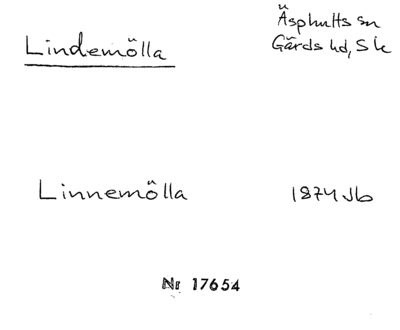 Lindemölla
Äsphults sn
Gärds hd, Sk
Linnemölla
1874 Jb
Nr 17654